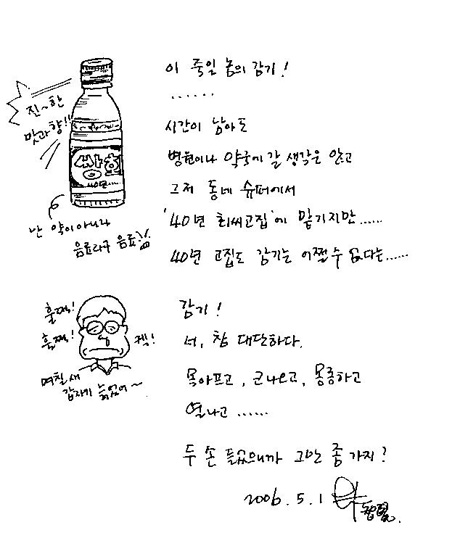 이 죽일 놈의 감기!
......
진~한
맛과 향!!
쌍화
40년...
난 약이 아니라
음료라구 음료
시간이 남아도
병원이나 약국에 갈 생각은 않고
그저 동네 슈퍼에서
'40년 최씨고집'에 맡기지만......
40년 고집도 감기는 어쩔 수 없다는......
훌쩍!
훌쩍!
켁!
며칠새
갑자기 늙었어~
감기!
너, 참 대단하다.
목아프고, 코나오고, 몽롱하고
열나고......
두 손 들었으니까 그만 좀 가지?
2006. 5. 1